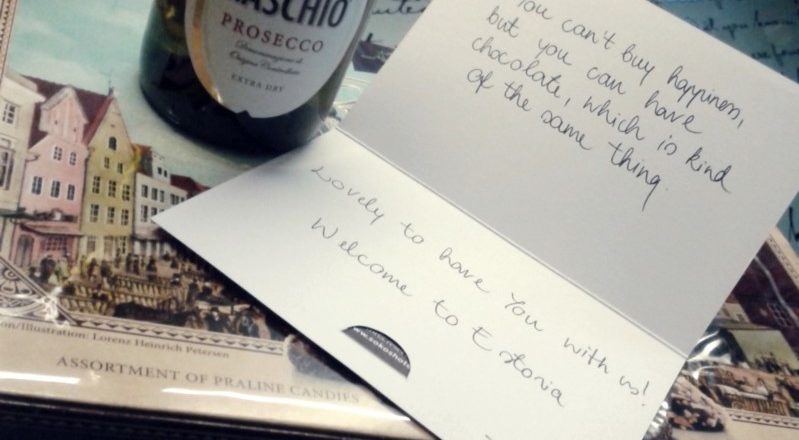 MASCHIO
PROSECCO
Denominazione di
Origine Controllata
EXTRA DRY
You can't buy happiness,
but you can have
chocolate, which is kind
of the same thing.
Lovely to have You with us!
Welcome to Estonia
www.sokoshot
Illustration: Lorenz Heinrich Petersen
ASSORTMENT OF PRALINE CANDIES